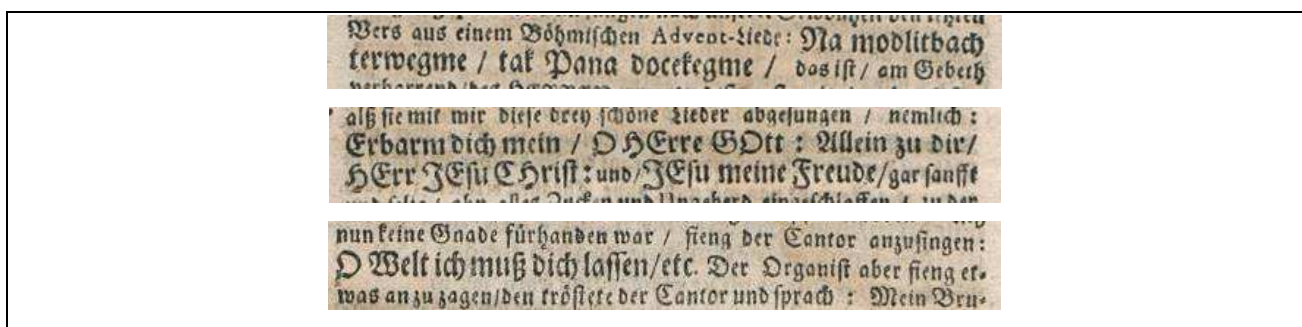 Vers aus einem Böhmischen Advent-Liede: Na modlitbach
terwegme / tak Pana docekegme / das ist / am Gebeth
alß sie mit mir diese drey schöne Lieder abgesungen / nemlich :
Erbarm dich mein / O HErre GOtt : Allein zu dir /
HErr JEsu CHrist : und / JEsu meine Freude / gar sanfft
nun keine Gnade fürhanden war / fieng der Cantor anzusingen :
O Welt ich muß dich lassen / etc. Der Organist aber fieng et-
was an zu zagen / den tröstete der Cantor und sprach : Mein Bru-